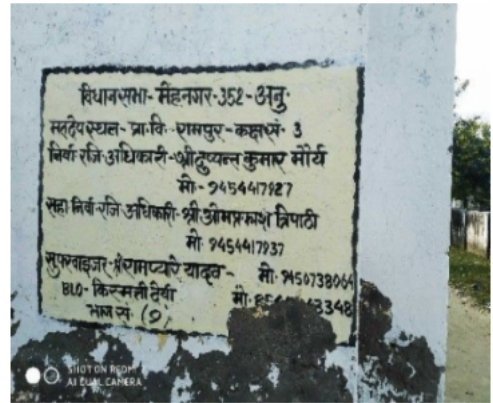 विधानसभा- मेंहनगर-352-अनु-
मतदेय स्थल- प्रा. वि. रामपुर- कक्ष सं. 3
निर्वा रजि अधिकारी-श्री दुष्यन्त कुमार मौर्य
मो- 9454417927
सहा निर्वा रजि अधिकारी- श्री ओमप्रकाश त्रिपाठी
मो. 9454417937
सुपरवाइजर-श्री रामप्यारे यादव- मो. 9450738064
BLO- किस्मती देवी मो.
भाग सं. (9)
SHOT ON REDMI 7
AI DUAL CAMERA